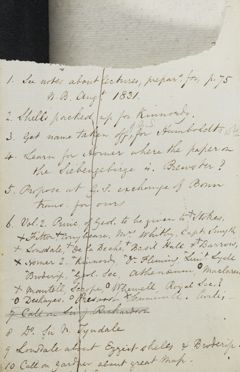 1. See notes about lectures, prepar. for, p. 75
N.B. Augt 1831.
2. Shells packed up for Kinnordy.
3. Get name taken off for Humboldt
4. Learn for Horner where the paper on
the Siebengebirge is. Brewster?
5. Propose at G.S. exchange of Bonn
trans. for ours
6. Vol. 2. Princ. of Geol. to be given to Stokes,
Fitton, Mrs Whitby, Capt. Smyth
Lonsdale, De la Beche, Basil Hall, Barrow,
Horner 2. Kinnordy Dr Fleming Lieut Lyell
Broderip, Geol. Soc. Athenaeum Maclaren
Mantell Scrope Whewell Royal Soc.?
Deshayes Prevost
7 Call on
8 Dr. Su N. Tyndale
9 Lonsdale about shells & Broderip
10 Call on Gardner about great Map.